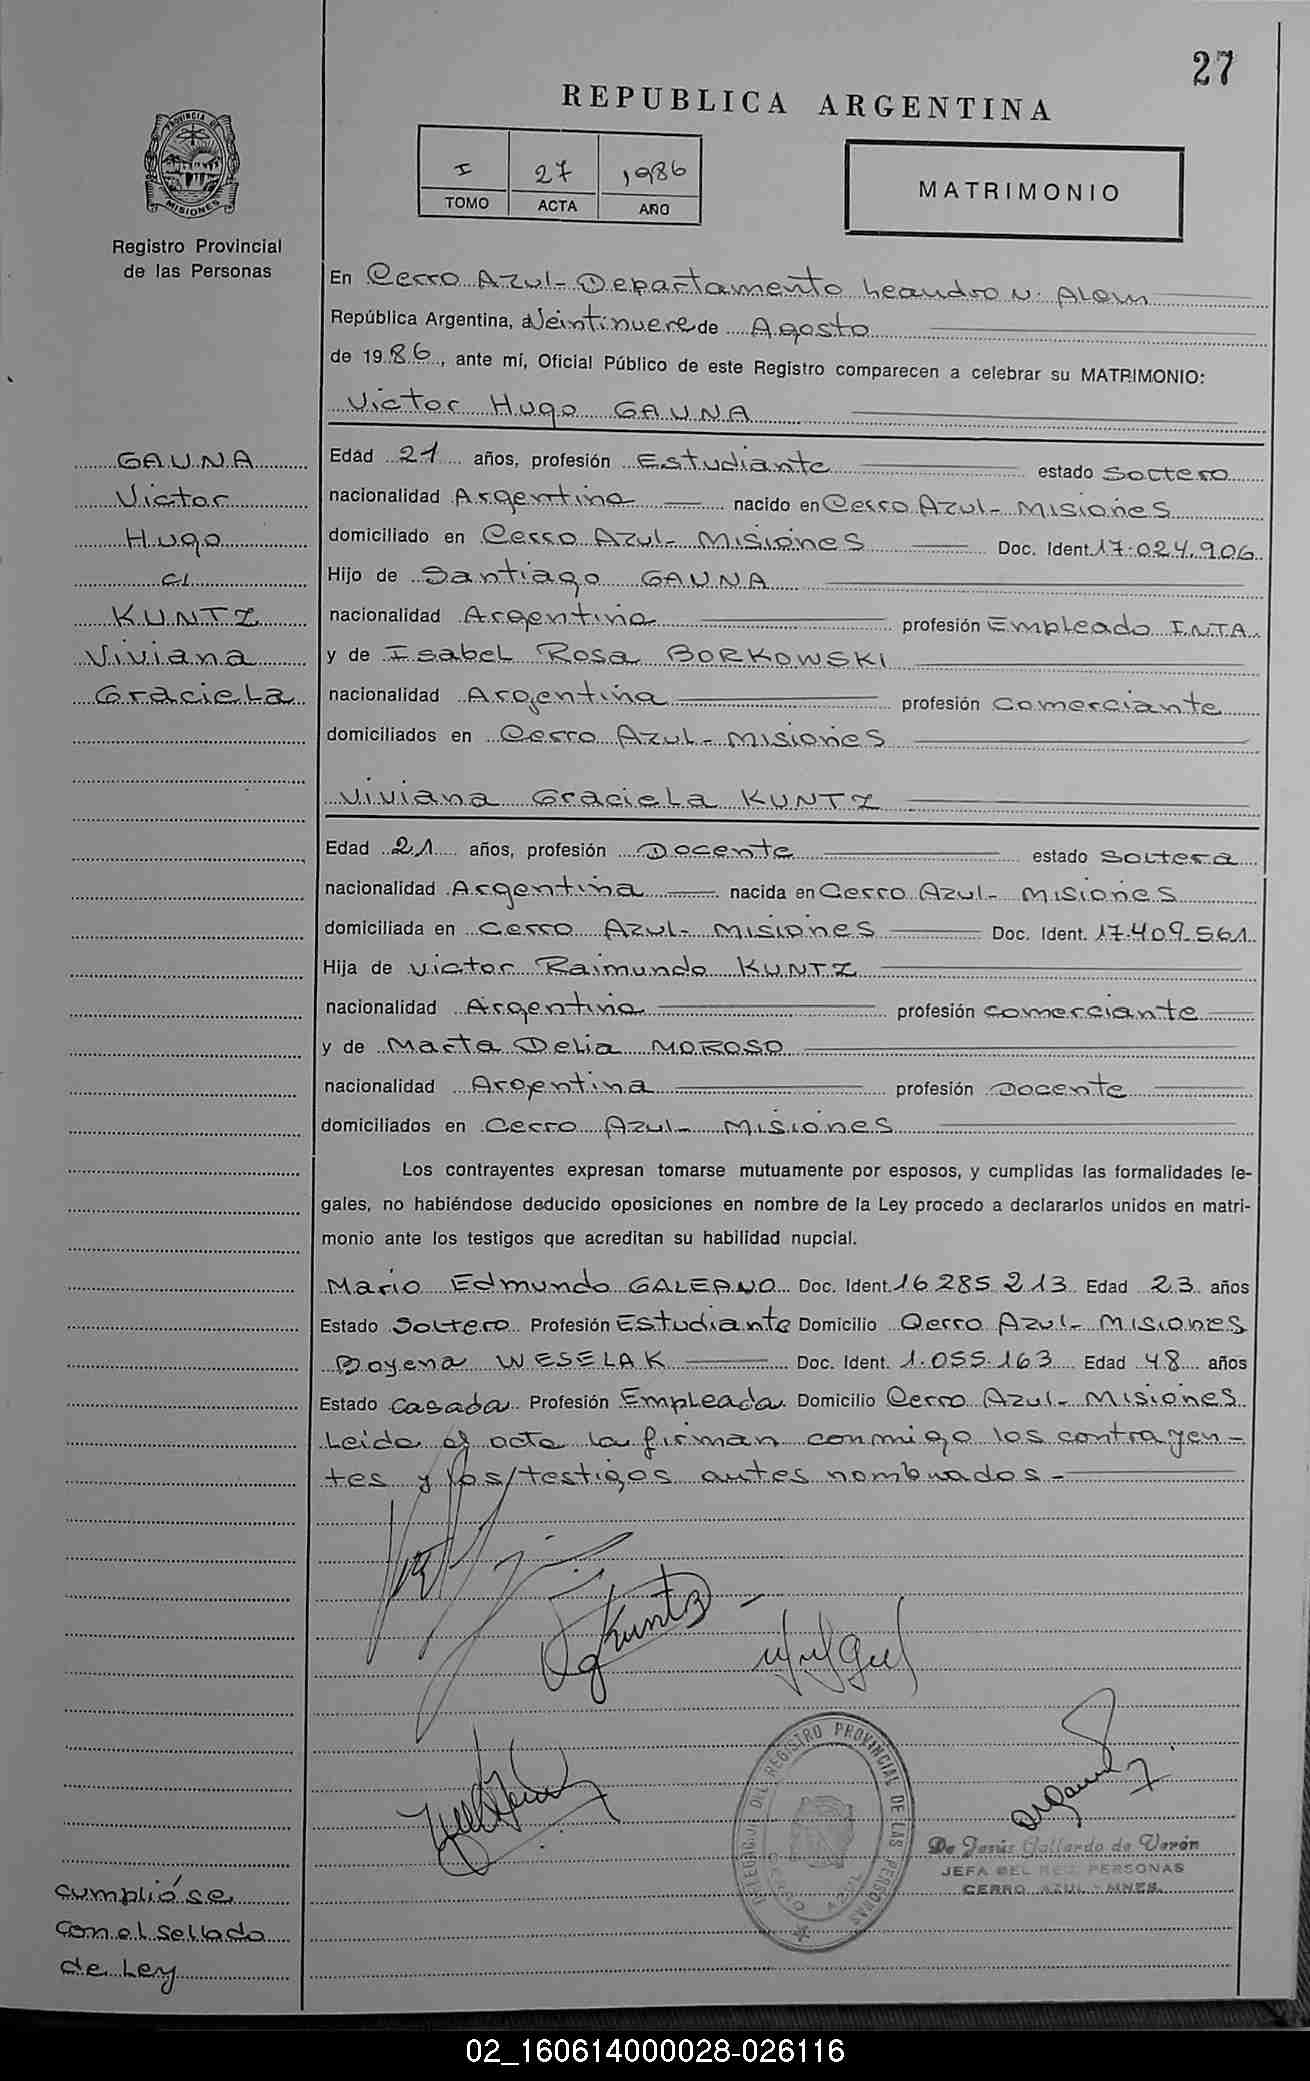 27
REPUBLICA ARGENTINA
I 27 1986
TOMO ACTA AÑO
MATRIMONIO
PROVINCIA DE MISIONES
Registro Provincial
de las Personas
En Cerro Azul - Departamento Leandro N. Alem
República Argentina, a Veintinueve de Agosto
de 1986, ante mí, Oficial Público de este Registro comparecen a celebrar su MATRIMONIO:
Victor Hugo GAUNA
GAUNA
Victor
Hugo
c/
KUNTZ
Viviana
Graciela
Edad 21 años, profesión Estudiante estado Soltero
nacionalidad Argentina nacido en Cerro Azul - Misiones
domiciliado en Cerro Azul - Misiones Doc. Ident. 17.024.906
Hijo de Santiago GAUNA
nacionalidad Argentina profesión Empleado INTA
y de Isabel Rosa BORKOWSKI
nacionalidad Argentina profesión Comerciante
domiciliados en Cerro Azul - Misiones
Viviana Graciela KUNTZ
Edad 21 años, profesión Docente estado Soltera
nacionalidad Argentina nacida en Cerro Azul - Misiones
domiciliada en Cerro Azul - Misiones Doc. Ident. 17.409.561
Hija de Victor Raimundo KUNTZ
nacionalidad Argentina profesión Comerciante
y de Marta Delia MOROSO
nacionalidad Argentina profesión Docente
domiciliados en Cerro Azul - Misiones
Los contrayentes expresan tomarse mutuamente por esposos, y cumplidas las formalidades le-
gales, no habiéndose deducido oposiciones en nombre de la Ley procedo a declararlos unidos en matri-
monio ante los testigos que acreditan su habilidad nupcial.
Mario Edmundo GALEANO Doc. Ident. 16.285.213 Edad 23 años
Estado Soltero Profesión Estudiante Domicilio Cerro Azul - Misiones
Boyena WESELAK Doc. Ident. 1.055.163 Edad 48 años
Estado Casada Profesión Empleada Domicilio Cerro Azul - Misiones
Leida el acta la firman conmigo los contrayen-
tes y los testigos antes nombrados -
Kuntz
DELEGACION DEL REGISTRO PROVINCIAL DE LAS PERSONAS
CERRO AZUL
De Jesús Gallardo de Verón
JEFA DEL REG. PERSONAS
CERRO AZUL - MNES.
cumplióse
con el sellado
de Ley
02_160614000028-026116